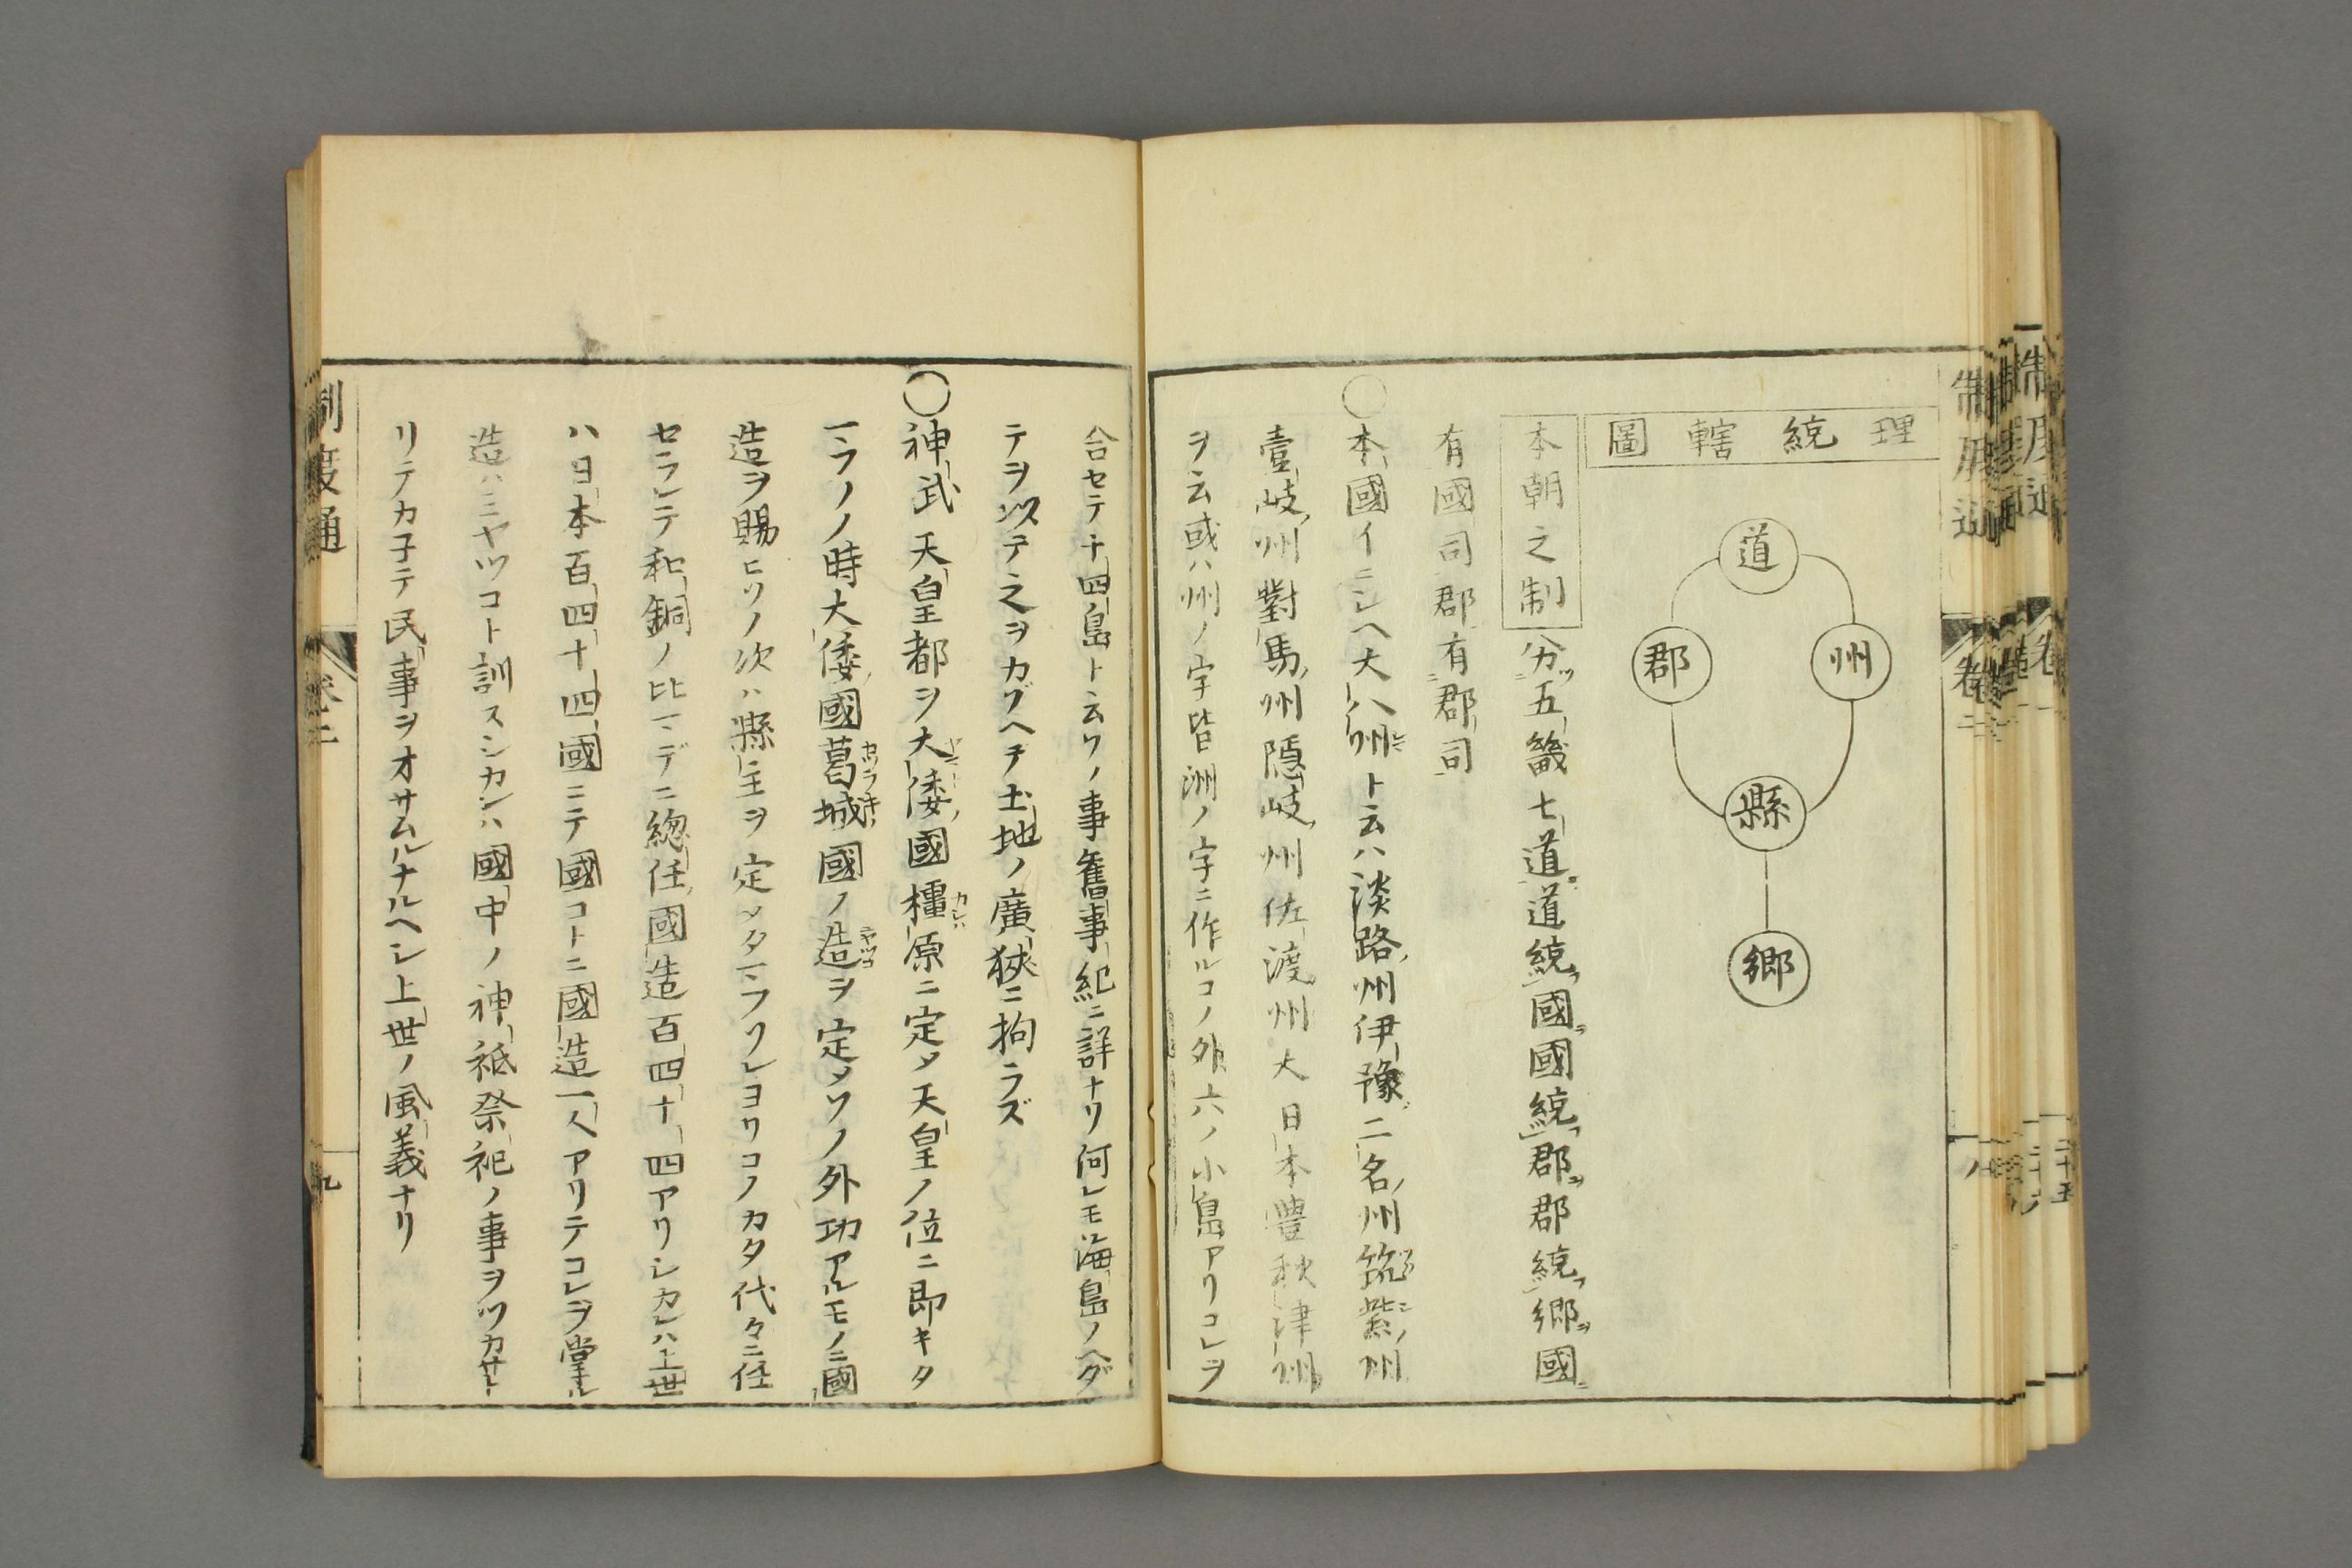 理統轄圖
道
州
郡
縣
郷
本朝之制分五畿七道道統國國統郡郡統郷國
有國司郡有郡司
○本國イニシヘ大八州ト云ハ淡路州伊豫二名州筑紫州
壹岐州對馬州隠岐州佐渡州大日本豊秋津州
ヲ云或ハ州ノ字皆洲ノ字ニ作ルコノ外六ノ小島アリコレヲ
合セテ十四島ト云ソノ事舊事紀ニ詳ナリ何レモ海島ノヘダ
テヲ以テ之ヲカゾヘテ土地ノ廣狹ニ拘ラズ
○神武天皇都ヲ大倭國橿原ニ定メ天皇ノ位ニ即キタ
マフノ時大倭國葛城國ノ造ヲ定メソノ外功アルモノニ國
造ヲ賜ヒソノ次ハ縣主ヲ定メタマフソレヨリコノカタ代々ニ任
セラレテ和銅ノ比マデニ總任國造百四十四アリシカレハ上世
ハ日本百四十四國ニテ國コトニ國造一人アリテコレヲ掌ル
造ハミヤツコト訓スシカレハ國中ノ神祇祭祀ノ事ヲツカサト
リテカ子テ民事ヲオサムルナルヘシ上世ノ風義ナリ
制度通
卷二
九